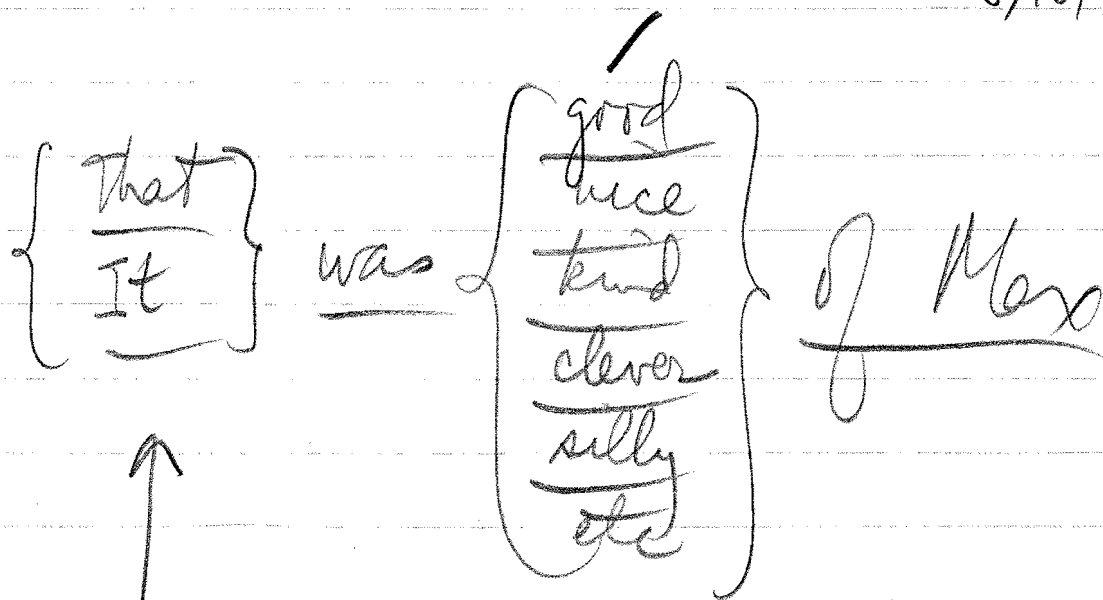 That
It
was
good
nice
kind
clever
silly
etc
of Max